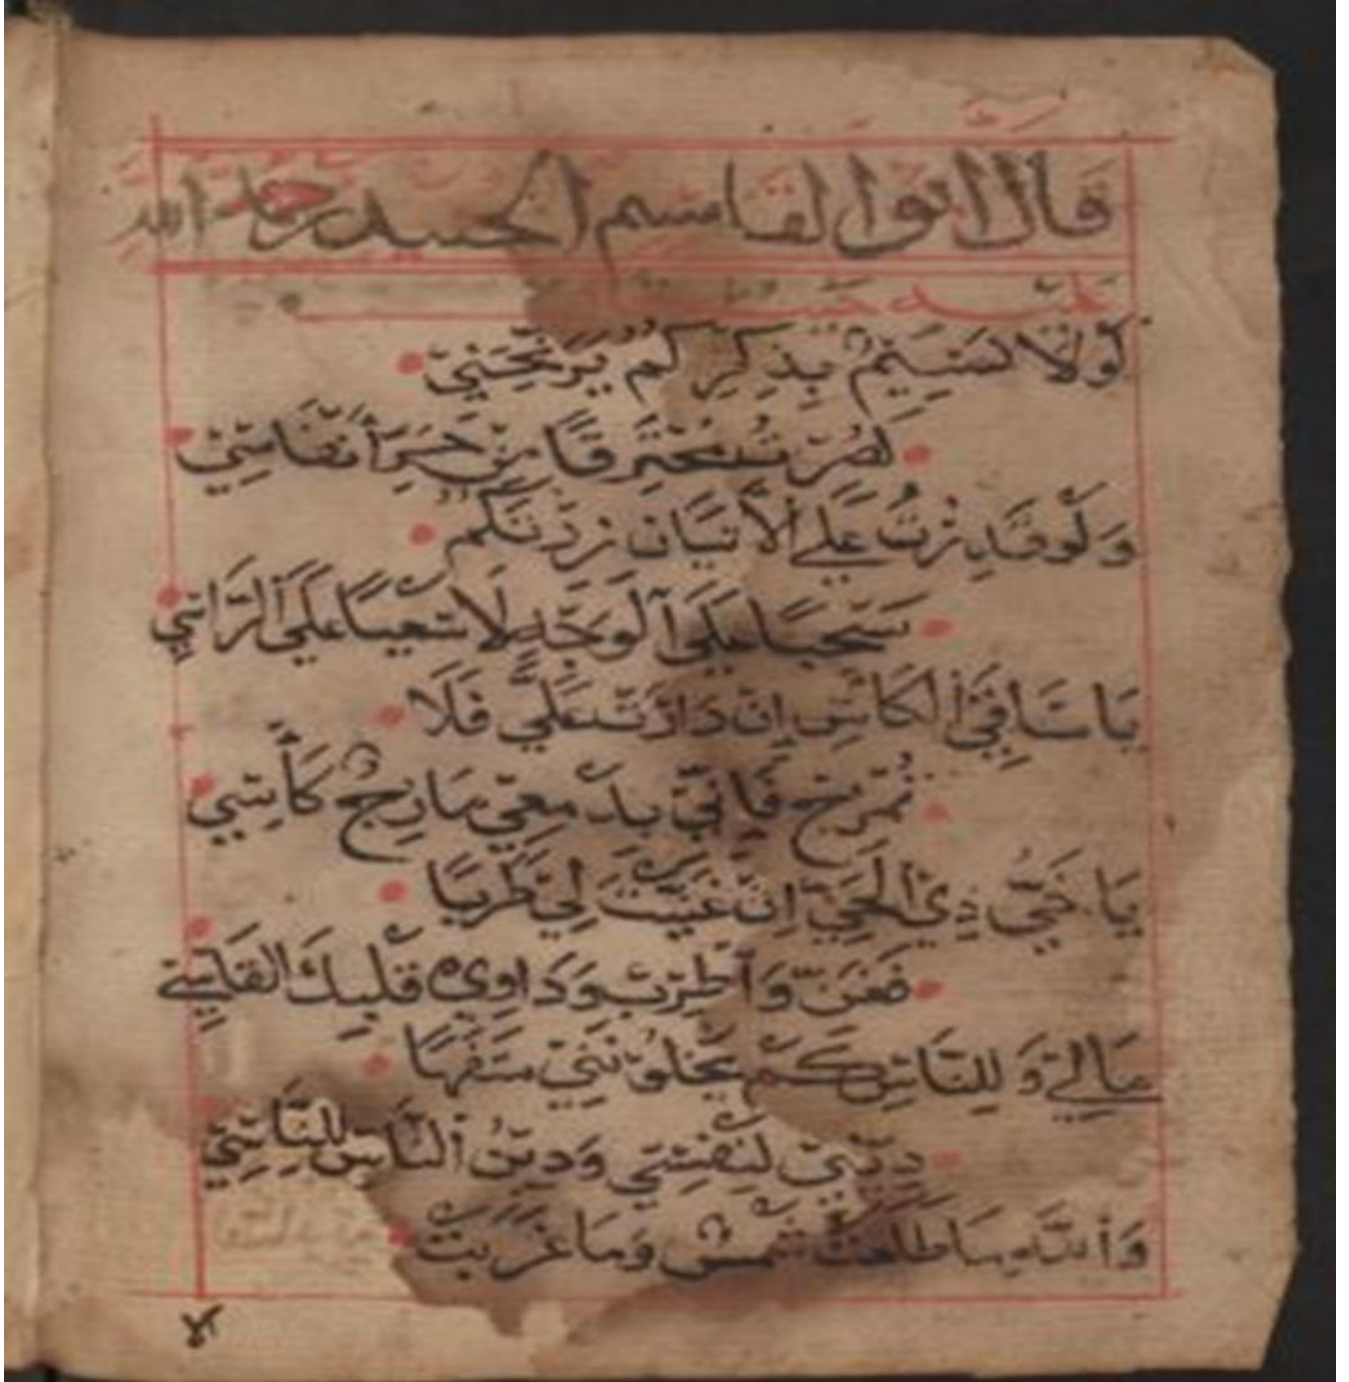 قال ابوا القاسم الجنيد رحمة الله
عليه
لَولَا نَسِيمٌ بِذِكرِكُم يُرَنِّحُنِي
لَصُرتُ مُحتَرِقًا مِن حَرِّ أَنفَاسِي
وَلَو قَدِرتُ عَلَي الاَتيَان زُرتَكُم
سَحبًا عَلَي الوَجهِ لَا سَعيًا عَلَي الرَّاسِي
يَا سَاقِيَ الكَاسِ اِن دَارَت عَلَيَّ فَلَا
تُمزَج فَاِنِّي بِدَمعِي مَازِجٌ كَأسِي
يَا حَيّ اِن غَنَّيتَ لِي طَرَبًا
فَغَنِّ وَاَطرِب وَدَاوِي قَلبِكَ القَاسِي
مَالِي وَلِلنَّاسِ كَم سَفَهًا
دِينِي لِنَفسِي وَدِينُ النَّاسِ لِلنَّاسِي
وَاَللَّهِ مَا طَلَعَت شَمسٌ وَمَا غَرَبَت
الا